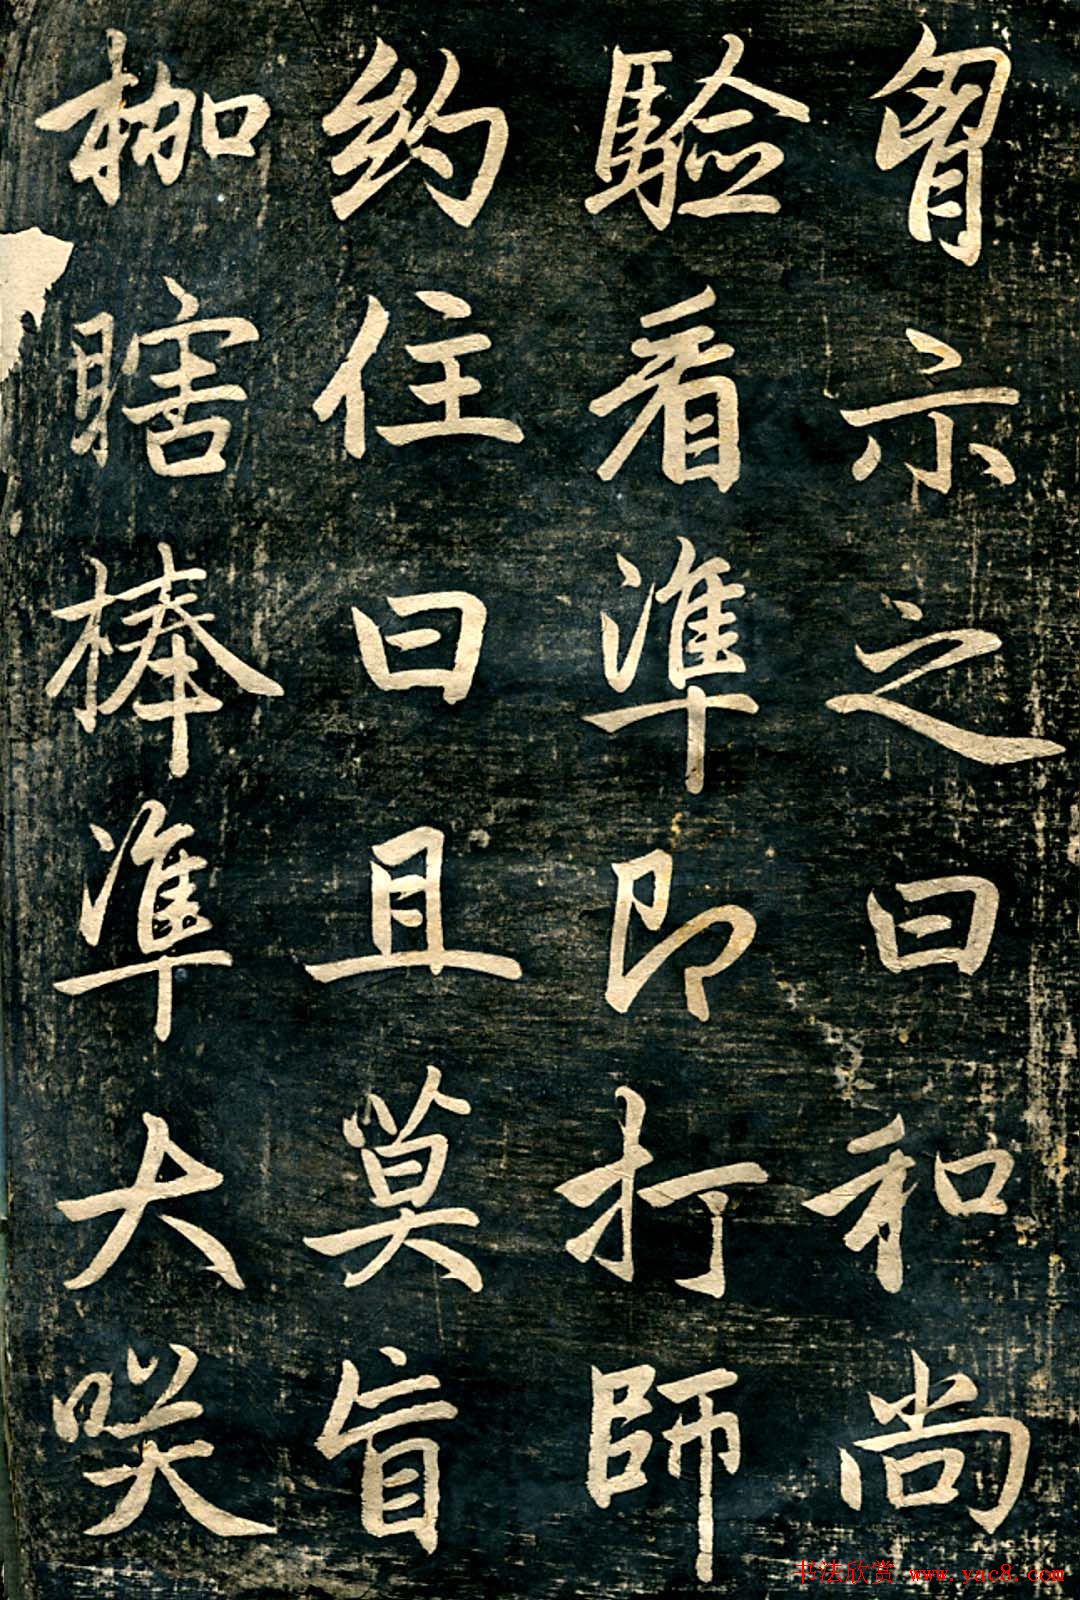 胷示之曰和尚
驗看準即打師
約住曰且莫盲
枷瞎棒準大咲
书法欣赏 www.yac8.com